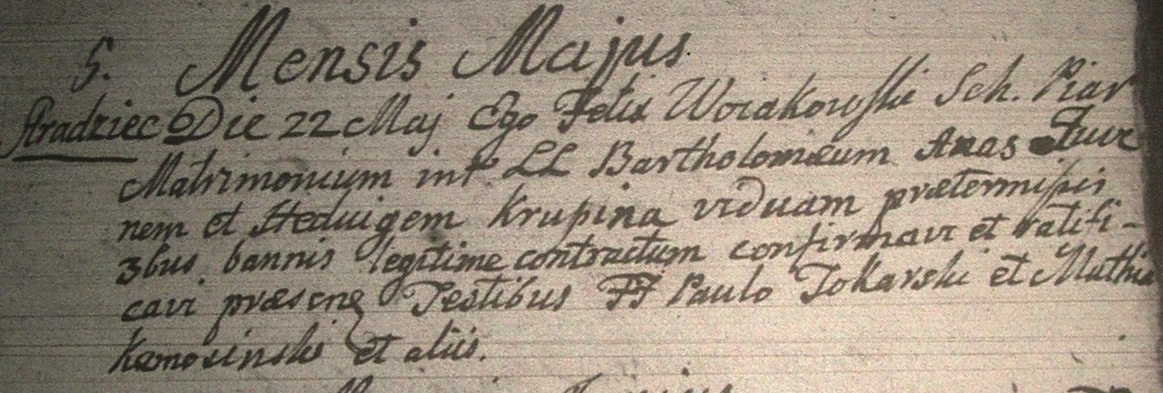 5. Mensis Majus
Gradziec Die 22 Maj Ego Felix Woiakowski Sch. Piar
Matrimonium int LL Bartholomæum Anas Juve
nem et Heduigem Krupina viduam prætermissis
3bus bannis legitime contractum confirmavi et ratifi-
cavi præsene Testibus FF Paulo Tokarski et Mathia
et aliis.